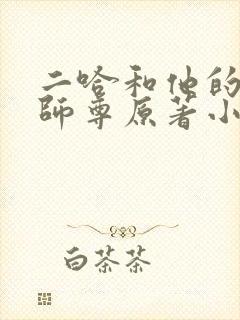 二哈和他的
師尊原著小
白茶茶